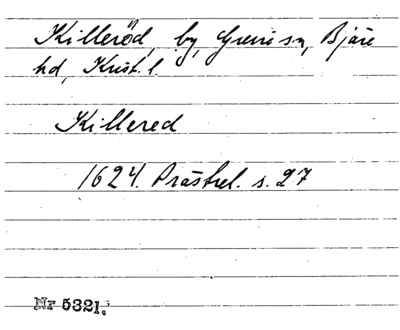 Killeröd, by, Grevie sn, Bjäre
hd, Krist. l.
Killered
1624. Prästrel. s. 27
Nr 5321.